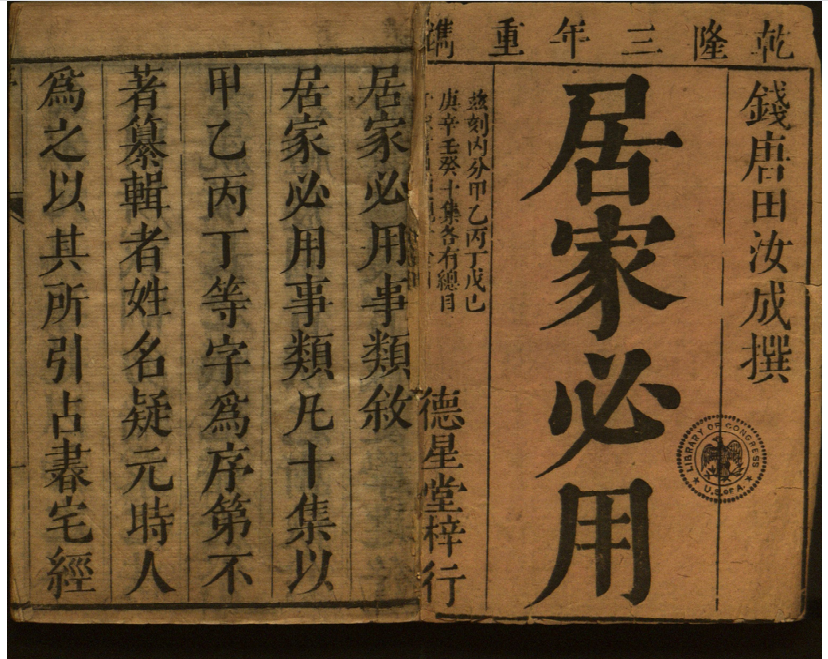 乾隆三年重鐫
錢唐田汝成撰
居家必用
兹刻内分甲乙丙丁戊己
庚辛壬癸十集各有總目
德星堂梓行
LIBRARY OF CONGRESS
U.S. OF A.
居家必用事類敘
居家必用事類凡十集以
甲乙丙丁等字爲序第不
著纂輯者姓名疑元時人
爲之以其所引占書宅經